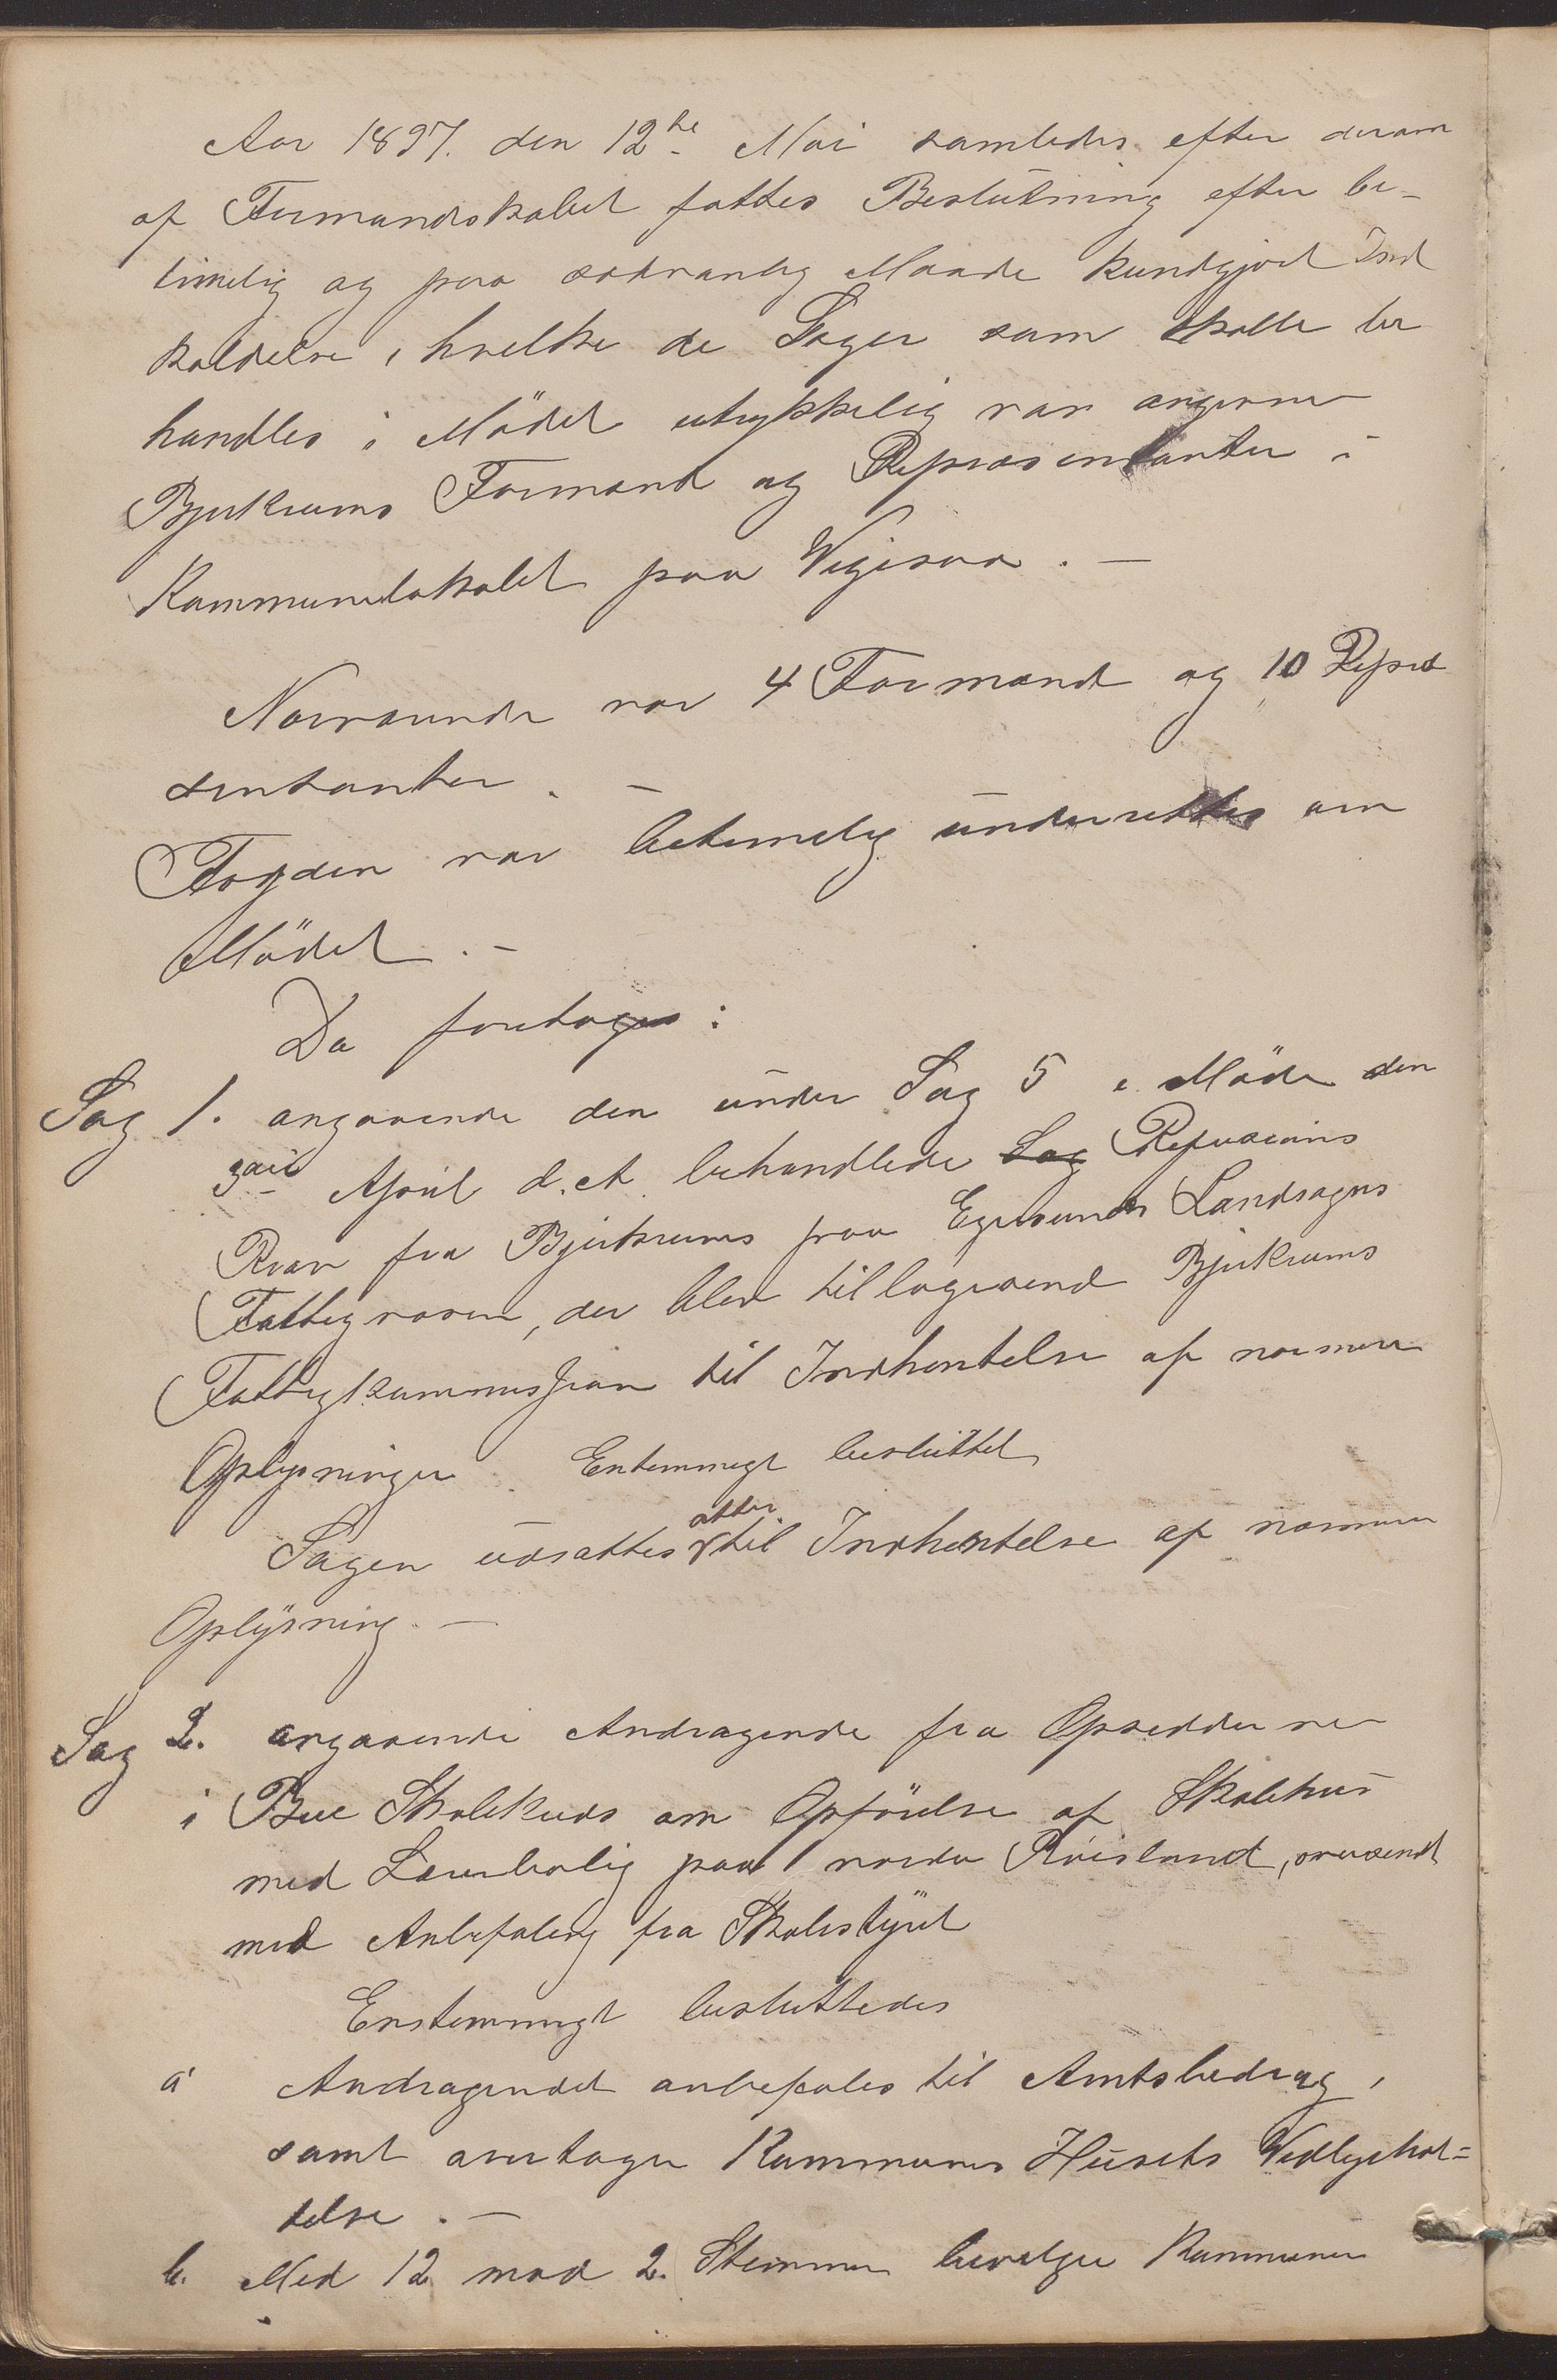 Aar 1897. den 12te Mai samledes efter derom
af Formandskabet fattes Beslutning efter be-
timelig og paa sedvanlig Maade kundgjord Ind
kaldelse, hvelke de Sager som skulle be
handles i Mödet utrykkelig var angivne
Bjerkreims Formænd og Repræsentanter i
Kommunelokalet paa Vigesaa. —
Nærværende var 4 Formænd og 10 Repræ
sentanter. —
Fogden var betimelig underrettes om
Mödet. —
Da foretages:
Sag 1. angaaende den under Sag 5 i Möde den
3die April d.A. behandlede Sag Refusions
Krav fra Bjerkreims paa Egersunds Landsogns
Fattigvæsen, der blev tillagesend Bjerkreims
Fattigkommission til Indhentelse af nærmere
Oplysninger. Enstemmigt besluttet
Sagen udsattes atter til Indhentelse af nærmere
Oplysning. —
Sag 2. angaaende Andragende fra Opsedderne
i Bue Skolekreds om Opförelse af Skolehus
med Lærerbolig paa nordre Röisland, oversendt
med Anbefaling fra Skolestyret
Enstemmigt besluttedes
a Andragendet anbefales til Amtsbedrag,
samt overtager Kommunen Husets Vedligehol=
delse. —
b. Med 12 mod 2. Stemmer bevelger Kommunen